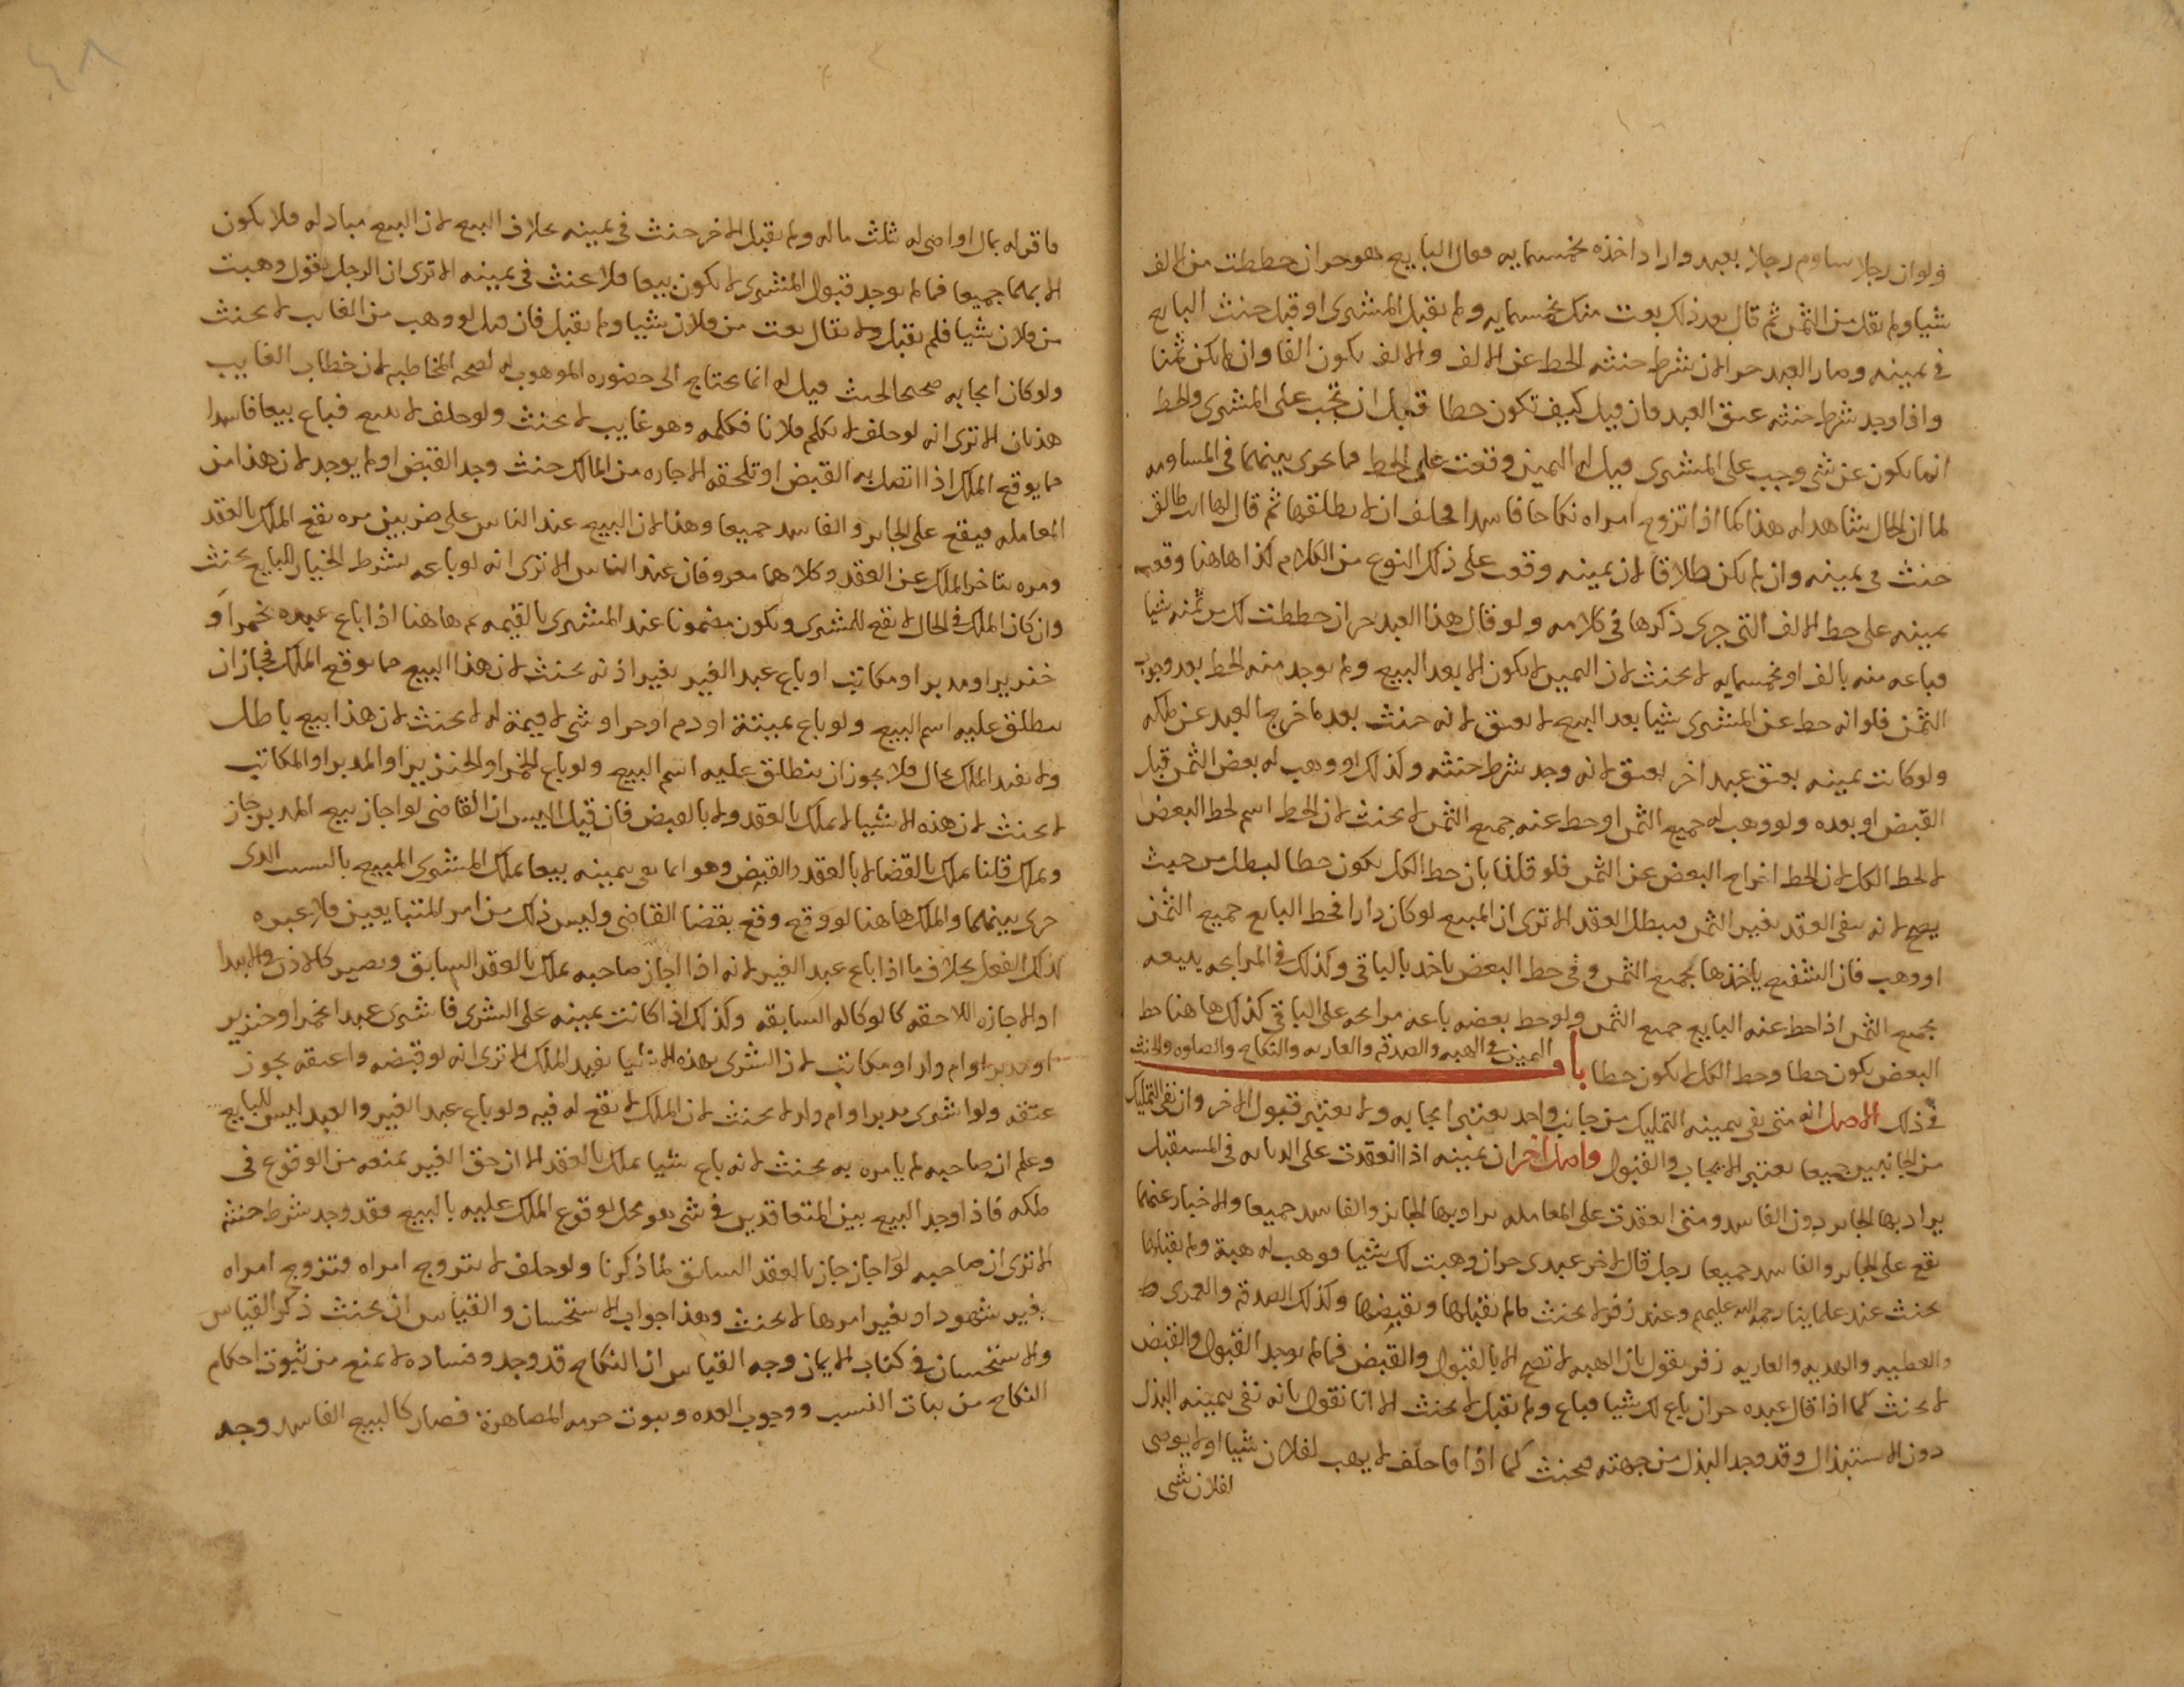 ولوان رجلا ساوم رجلا بعبد واراد اخذه بخمسمايه فعال البايع هو حر ان حططت من الالف
شيا ولم يقل من الثمن ثم قال بعد ذلك بعت منك بخمسمايه ولم يقبل المشترى او قبل حنث البايع
فى يمينه وصار العبد حرا لان شرط حنثه الحط عن الالف والالف يكون الفا وان لم يكن ثمنا
واذا وجد شرط حنثه عتق العبد فان قيل كيف تكون حطا قبل ان تجب على المشترى والحط
انما يكون عن شى وجب على المشترى قيل له اليمين وقعت على الحط فما يجرى بينهما فى المساومه
لما ان الحال شاهد له هذا كما اذا تزوج امراه نكاحا فاسدا فحلف ان لا يطلقها ثم قال لها انت طالق
حنث فى يمينه وان لم يكن طلاقا لان يمينه وقعت على ذلك النوع من الكلام كذا هاهنا وقعت
يمينه على حط الالف التى جرى ذكرها فى كلامه ولو قال هذا العبد حر ان حططت لك من ثمنه شيا
فباعه منه بالف او بخمسمايه لا يحنث لان اليمين لا يكون الا بعد البيع ولم يوجد منه الحط بعد وجوب
الثمن فلو انه حط عن المشترى شيا بعد البيع لا يعتق لانه حنث بعد ما خرج العبد عن ملكه
ولو كانت يمينه بعتق عبد اخر يعتق لانه وجد شرط حنثه وكذلك لو وهب له بعض الثمن قبل
القبض او بعده ولو وهب له جميع الثمن او حط عنه جميع الثمن لا يحنث لان الحط اسم لحط البعض
لا لحط الكل لان الحط اخراج البعض عن الثمن فلو قلنا بان حط الكل يكون حطا لبطل من حيث
يصح لانه يبقى العقد بغير الثمن فيبطل العقد الا ترى ان المبيع لو كان دارا فحط البايع جميع الثمن
او وهب فان الشفيع ياخذها بجميع الثمن وفى حط البعض ياخذ بالباقى وكذلك فى المرابحه يبيعه
بجميع الثمن اذا حط عنه البايع جميع الثمن ولو حط بعضه باعه مرابحه على الباقى كذلك هاهنا حط
البعض يكون حطا وحط الكل لا يكون حطا باب اليمين فى الهبه والصدقه والعاريه والنكاح والصلوه والحنث
فى ذلك الاصل انه متى نفى بيمينه التمليك من جانب واحد يعتبر ايجابه ولا يعتبر قبول الاخر وان نفى التمليك
من الجانبين جميعا يعتبر الايجاب والقبول واصل اخر ان يمينه اذا انعقدت على الديانه فى المستقبل
يراد بها الجايز دون الفاسد ومتى انعقدت على المعامله يراد بها الجايز والفاسد جميعا والاخبار عنهما
يقع على الجايز والفاسد جميعا رجل قال لاخر عبدى حر ان وهبت لك شيا فوهب له هبة ولم يقبلها
يحنث عند علماينا رحمه الله عليهم وعند زفر لا يحنث ما لم يقبلها ويقبضها وكذلك الصدقه والعمرى
والعطيه والهديه والعاريه زفر يقول بان الهبه لا تصح الا بالقبول والقبض فما لم يوجد القبول والقبض
لا يحنث كما اذا قال عبده حر ان باع لك شيا فباع ولم يقبل لا يحنث الا انا نقول بانه نفى بيمينه البذل
دون الاستبذال وقد وجد البذل من جهته فيحنث كما اذا ما حلف لا يهب لفلان شيا او لا يوصى
لفلان بشى
ما قر له بمال او اوصى له بثلث ماله ولم يقبل الاخر حنث فى يمينه بخلاف البيع لان البيع مبادله فلا يكون
الا بهما جميعا فما لم يوجد قبول المشترى لا يكون بيعا فلا يحنث فى يمينه الا ترى ان الرجل يقول وهبت
من فلان شيا فلم يقبل ولا يقال بعت من فلان شيا ولم يقبل فان قيل لو وهب من الغايب لا يحنث
ولو كان ايجابه صحيحا لحنث قيل له انما يحتاج الى حضوره الموهوب له لصحه المخاطبه لان خطاب الغايب
هذيان الا ترى انه لو حلف لا يكلم فلانا فكلمه وهو غايب لا يحنث ولو حلف لا يبيع فباع بيعا فاسدا
مما يوقع الملك اذا اتصل به القبض او تلحقه الاجازه من المالك حنث وجد القبض او لم يوجد لان هذا من
المعامله فيقع على الجايز والفاسد جميعا وهذا لان البيع عند الناس على ضربين مره يقع الملك بالعقد
ومره يتاخر الملك عن العقد وكلاهما معروفان عند الناس الا ترى انه لو باعه بشرط الخيار للبايع يحنث
وان كان الملك فى الحال لا يقع للمشترى ويكون مضمونا عند المشترى بالقيمه ثم هاهنا اذا باع عبده بخمر او
خنزير او مدبر او مكاتب او باع عبد الغير بغير اذنه يحنث لان هذا البيع مما يوقع الملك فجاز ان
ينطلق عليه اسم البيع ولو باع بميتة او دم او حر او شى لا قيمة له لا يحنث لان هذا بيع باطل
ولا يفيد الملك بحال فلا يجوز ان ينطلق عليه اسم البيع ولو باع الخمر او الخنزير او المدبر او المكاتب
لا يحنث لان هذه الاشيا لا يملك بالعقد ولا بالقبض فان قيل اليس ان القاضى لو اجاز بيع المدبر جاز
ويملك قلنا يملك بالقضا لا بالعقد والقبض وهو انما نفى بيمينه بيعا يملك المشترى المبيع بالسبب الذى
جرى بينهما والملك هاهنا لو وقع وقع بقضا القاضى وليس ذلك من امر المتبايعين فلا عبره
لذلك الفعل بخلاف ما اذا باع عبد الغير لانه اذا اجاز صاحبه يملك بالعقد السابق ويصير كالاذن فى الابتدا
اذ الاجازه اللاحقه كالوكاله السابقه وكذلك اذا كانت يمينه على الشرى فاشترى عبدا بخمر او خنزير
او مدبر او ام ولد او مكاتب لان الشرى بهذه الاشيا يفيد الملك الا ترى انه لو قبضه واعتقه يجوز
عتقه ولو اشترى مدبرا او ام ولد لا يحنث لان الملك لا يقع له فيه ولو باع عبد الغير والعبد ليس للبايع
وعلم ان صاحبه لم يامره به يحنث لانه باع شيا يملك بالعقد الا ان حق الغير يمنعه من الوقوع فى
ملكه فاذا وجد البيع بين المتعاقدين فى شى هو محل لوقوع الملك عليه بالبيع فقد وجد شرط حنثه
الا ترى ان صاحبه لو اجاز جاز بالعقد السابق لما ذكرنا ولو حلف لا يتزوج امراه فتزوج امراه
بغير شهود او بغير امرها لا يحنث وهذا جواب الاستحسان والقياس ان يحنث ذكر القياس
والاستحسان فى كتاب الايمان وجه القياس ان النكاح قد وجد وفساده لا يمنع من ثبوت احكام
النكاح من ثبات النسب ووجوب العده وثبوت حرمه المصاهرة فصار كالبيع الفاسد وجه